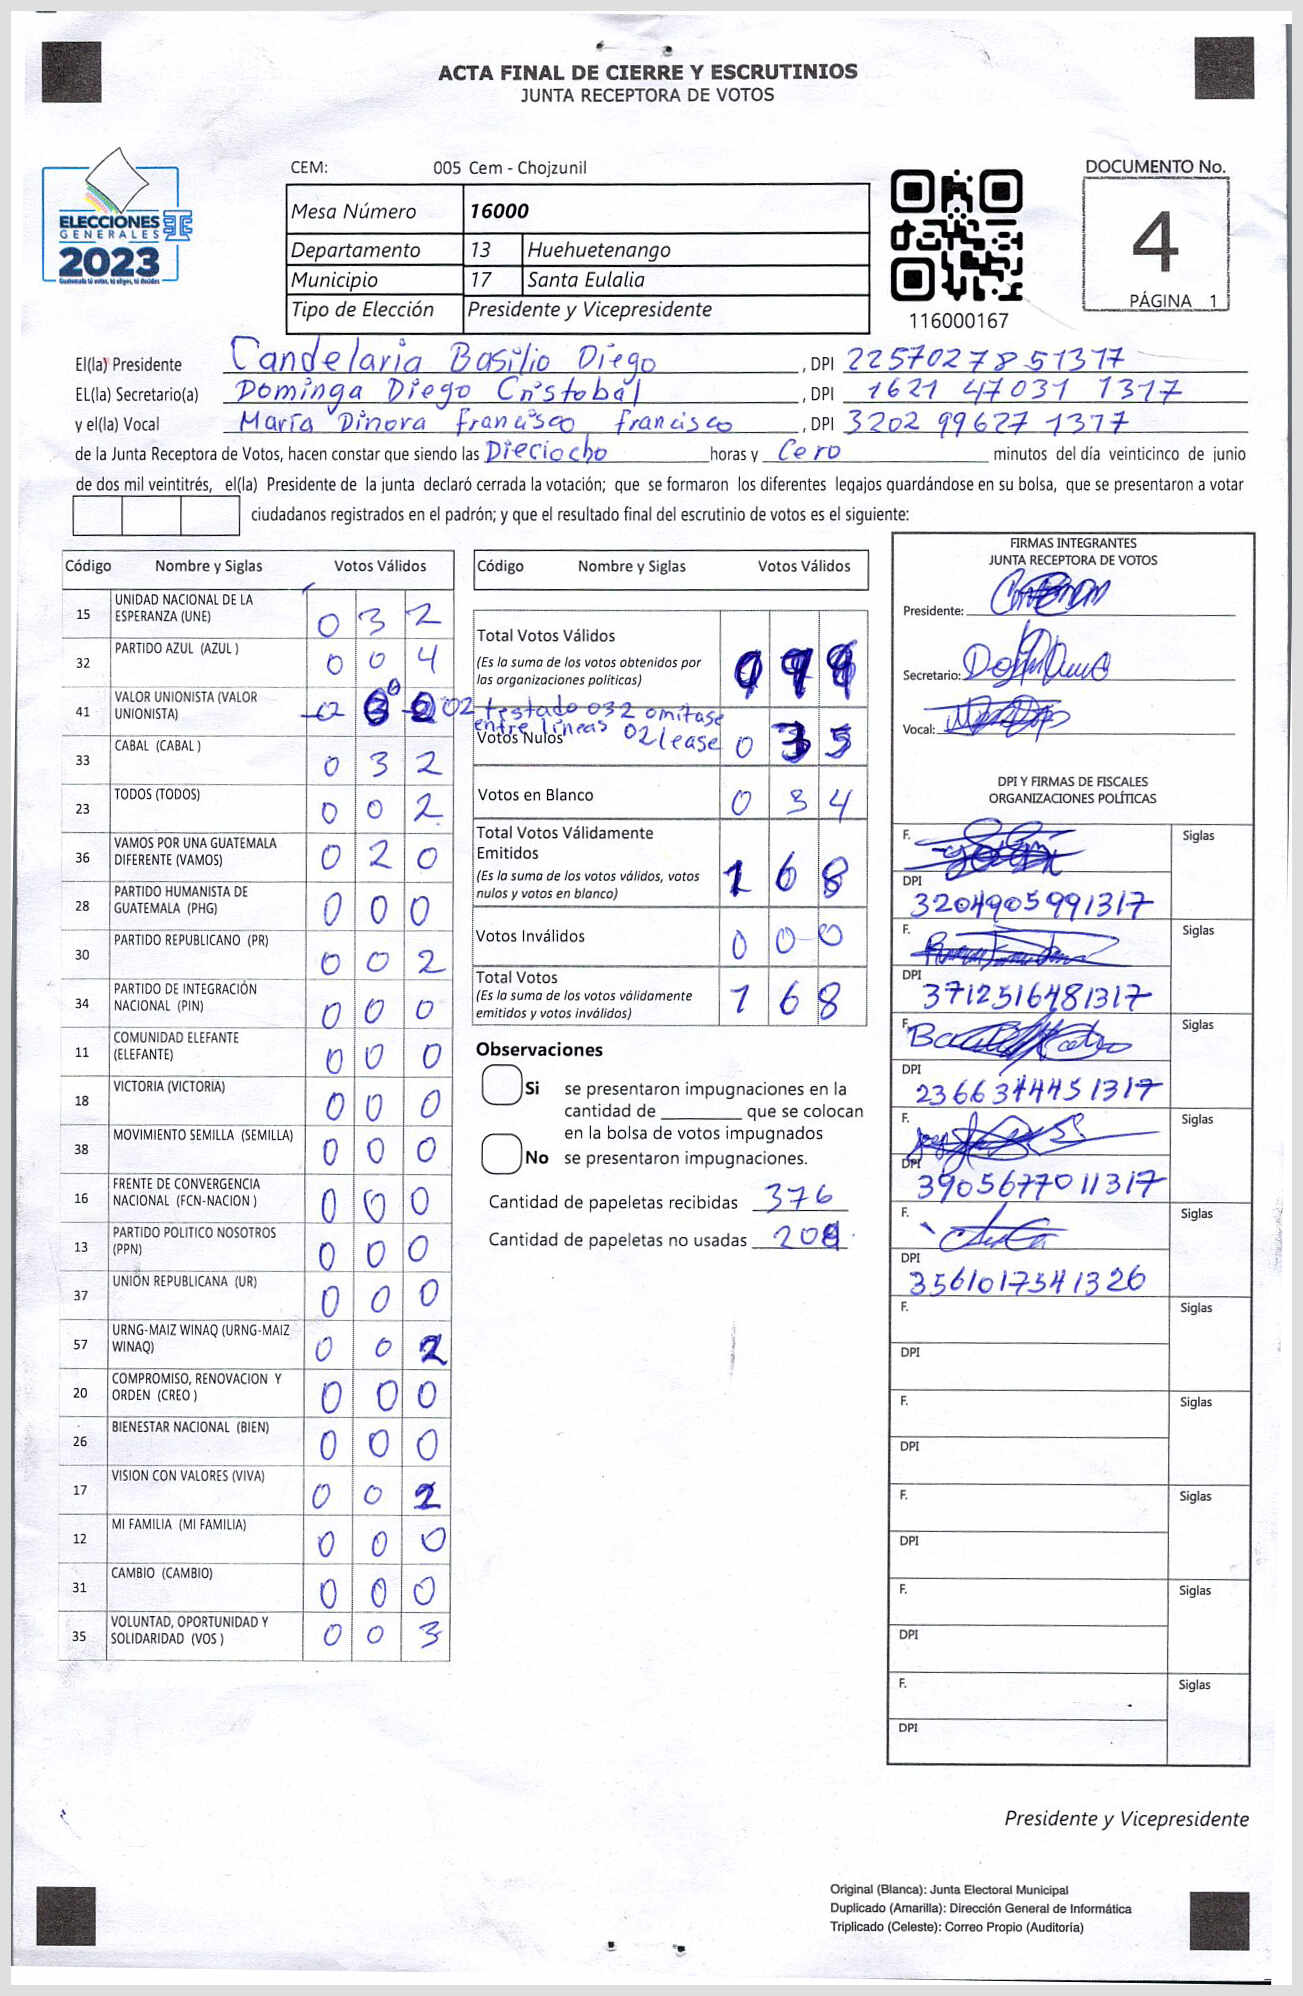 ACTA FINAL DE CIERRE Y ESCRUTINIOS
JUNTA RECEPTORA DE VOTOS
ELECCIONES
GENERALES
2023
Guatemala tú votas, tú eliges, tú decides
CEM: 005 Cem - Chojzunil
Mesa Número 16000
Departamento 13 Huehuetenango
Municipio 17 Santa Eulalia
Tipo de Elección Presidente y Vicepresidente
116000167
DOCUMENTO No.
4
PÁGINA 1
El(la) Presidente Candelaria Basilio Diego , DPI 2257027851317
EL(la) Secretario(a) Dominga Diego Cristobal , DPI 1621 47031 1317
y el(la) Vocal María Dinora Francisco Francisco , DPI 3202 99627 1317
de la Junta Receptora de Votos, hacen constar que siendo las Dieciocho horas y Cero minutos del día veinticinco de junio
de dos mil veintitrés, el(la) Presidente de la junta declaró cerrada la votación; que se formaron los diferentes legajos guardándose en su bolsa, que se presentaron a votar
ciudadanos registrados en el padrón; y que el resultado final del escrutinio de votos es el siguiente:
Código Nombre y Siglas Votos Válidos
15 UNIDAD NACIONAL DE LA ESPERANZA (UNE) 0 3 2
32 PARTIDO AZUL (AZUL ) 0 0 4
41 VALOR UNIONISTA (VALOR UNIONISTA) 02 testado 032 omitase
entre líneas 02 lease
33 CABAL (CABAL ) 0 3 2
23 TODOS (TODOS) 0 0 2
36 VAMOS POR UNA GUATEMALA DIFERENTE (VAMOS) 0 2 0
28 PARTIDO HUMANISTA DE GUATEMALA (PHG) 0 0 0
30 PARTIDO REPUBLICANO (PR) 0 0 2
34 PARTIDO DE INTEGRACIÓN NACIONAL (PIN) 0 0 0
11 COMUNIDAD ELEFANTE (ELEFANTE) 0 0 0
18 VICTORIA (VICTORIA) 0 0 0
38 MOVIMIENTO SEMILLA (SEMILLA) 0 0 0
16 FRENTE DE CONVERGENCIA NACIONAL (FCN-NACION ) 0 0 0
13 PARTIDO POLITICO NOSOTROS (PPN) 0 0 0
37 UNIÓN REPUBLICANA (UR) 0 0 0
57 URNG-MAIZ WINAQ (URNG-MAIZ WINAQ) 0 0 2
20 COMPROMISO, RENOVACION Y ORDEN (CREO ) 0 0 0
26 BIENESTAR NACIONAL (BIEN) 0 0 0
17 VISION CON VALORES (VIVA) 0 0 2
12 MI FAMILIA (MI FAMILIA) 0 0 0
31 CAMBIO (CAMBIO) 0 0 0
35 VOLUNTAD, OPORTUNIDAD Y SOLIDARIDAD (VOS ) 0 0 3
Código Nombre y Siglas Votos Válidos
Total Votos Válidos
(Es la suma de los votos obtenidos por
las organizaciones políticas)
Votos Nulos 0 3 5
Votos en Blanco 0 3 4
Total Votos Válidamente
Emitidos
(Es la suma de los votos válidos, votos
nulos y votos en blanco) 1 6 8
Votos Inválidos 0 0 0
Total Votos
(Es la suma de los votos válidamente
emitidos y votos inválidos) 1 6 8
Observaciones
Si se presentaron impugnaciones en la
cantidad de ________ que se colocan
en la bolsa de votos impugnados
No se presentaron impugnaciones.
Cantidad de papeletas recibidas 376
Cantidad de papeletas no usadas 208
FIRMAS INTEGRANTES
JUNTA RECEPTORA DE VOTOS
Presidente:
Secretario:
Vocal:
DPI Y FIRMAS DE FISCALES
ORGANIZACIONES POLÍTICAS
F. Siglas
DPI
3204905991317
F. Siglas
DPI
3712516481317
F. Siglas
DPI
2366344451317
F. Siglas
DPI
3905677011317
F. Siglas
DPI
3561017541326
F. Siglas
DPI
F. Siglas
DPI
F. Siglas
DPI
F. Siglas
DPI
F. Siglas
DPI
Presidente y Vicepresidente
Original (Blanca): Junta Electoral Municipal
Duplicado (Amarilla): Dirección General de Informática
Triplicado (Celeste): Correo Propio (Auditoría)